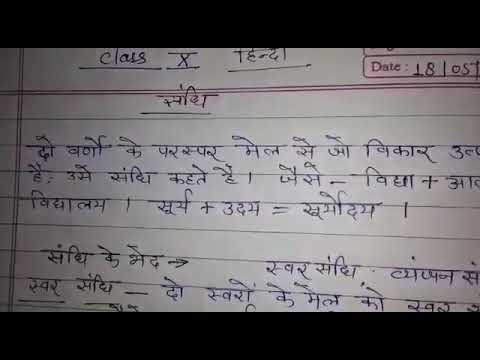 Class X हिन्दी
Date : 18/05/
संधि
दो वर्णों के परस्पर मेल से जो विकार
है, उसे संधि कहते है। जैसे – विद्या +
विद्यालय । सूर्य + उदय = सूर्योदय ।
संधि के भेद → स्वर संधि . व्यंजन
स्वर संधि – दो स्वरों के मेल को स्वर